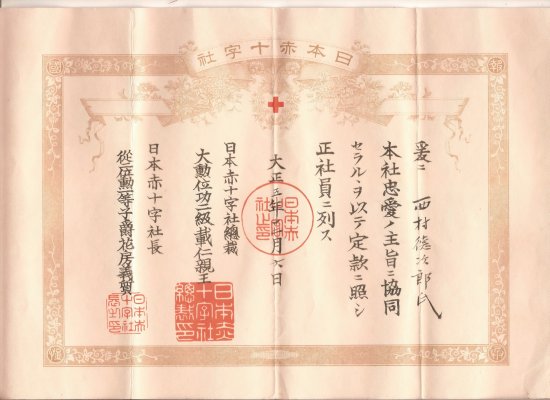 日本赤十字社
報
國
爰ニ 西村德次郎氏
本社忠愛ノ主旨ニ協同
セラルヽヲ以テ定款ニ照シ
正社員ニ列ス
大正五年 月六日
日本赤十字社之印
日本赤十字社總裁
大勲位功二級載仁親王
日本赤十字社總裁印
日本赤十字社長
從二位勲一等子爵花房義質
日本赤十字社長之印